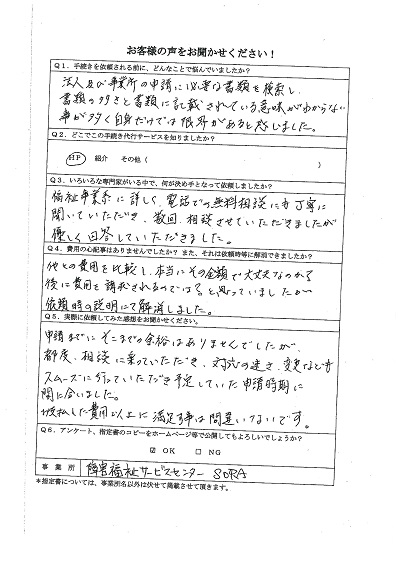 お客様の声をお聞かせください！
Q1．手続きを依頼される前に、どんなことで悩んでいましたか？
法人及び事業所の申請に必要な書類を検索し、
書類の多さと書類に記載されている意味がわからない
事が多く自身だけでは限界があると感じました。
Q2．どこでこの手続代行サービスを知りましたか？
HP 紹介 その他（ ）
Q3．いろいろな専門家がいる中で、何が決め手となって依頼しましたか？
福祉事業系に詳しく、電話での無料相談にも丁寧に
聞いていただき、数回、相談させていただきましたが
優しく回答していただきました。
Q4．費用の心配事はありませんでしたか？また、それは依頼時等に解消できましたか？
他との費用を比較し、本当にその金額で大丈夫なのか？
後に費用を請求されるのでは？と思っていましたが
依頼時の説明にて解消しました。
Q5．実際に依頼してみた感想をお聞かせください。
申請までにそこまでの余裕はありませんでしたが、
都度、相談に乗っていただき、対応の速さ、変更なども
スムーズに行っていただき予定していた申請時期に
間に合いました。
支払した費用以上に満足事は間違いないです。
Q6．アンケート、指定書のコピーをホームページ等で公開してもよろしいでしょうか？
☑ OK □ NG
事業所 障害福祉サービスセンター SORA
*指定書については、事業所名以外は伏せて掲載させて頂きます。